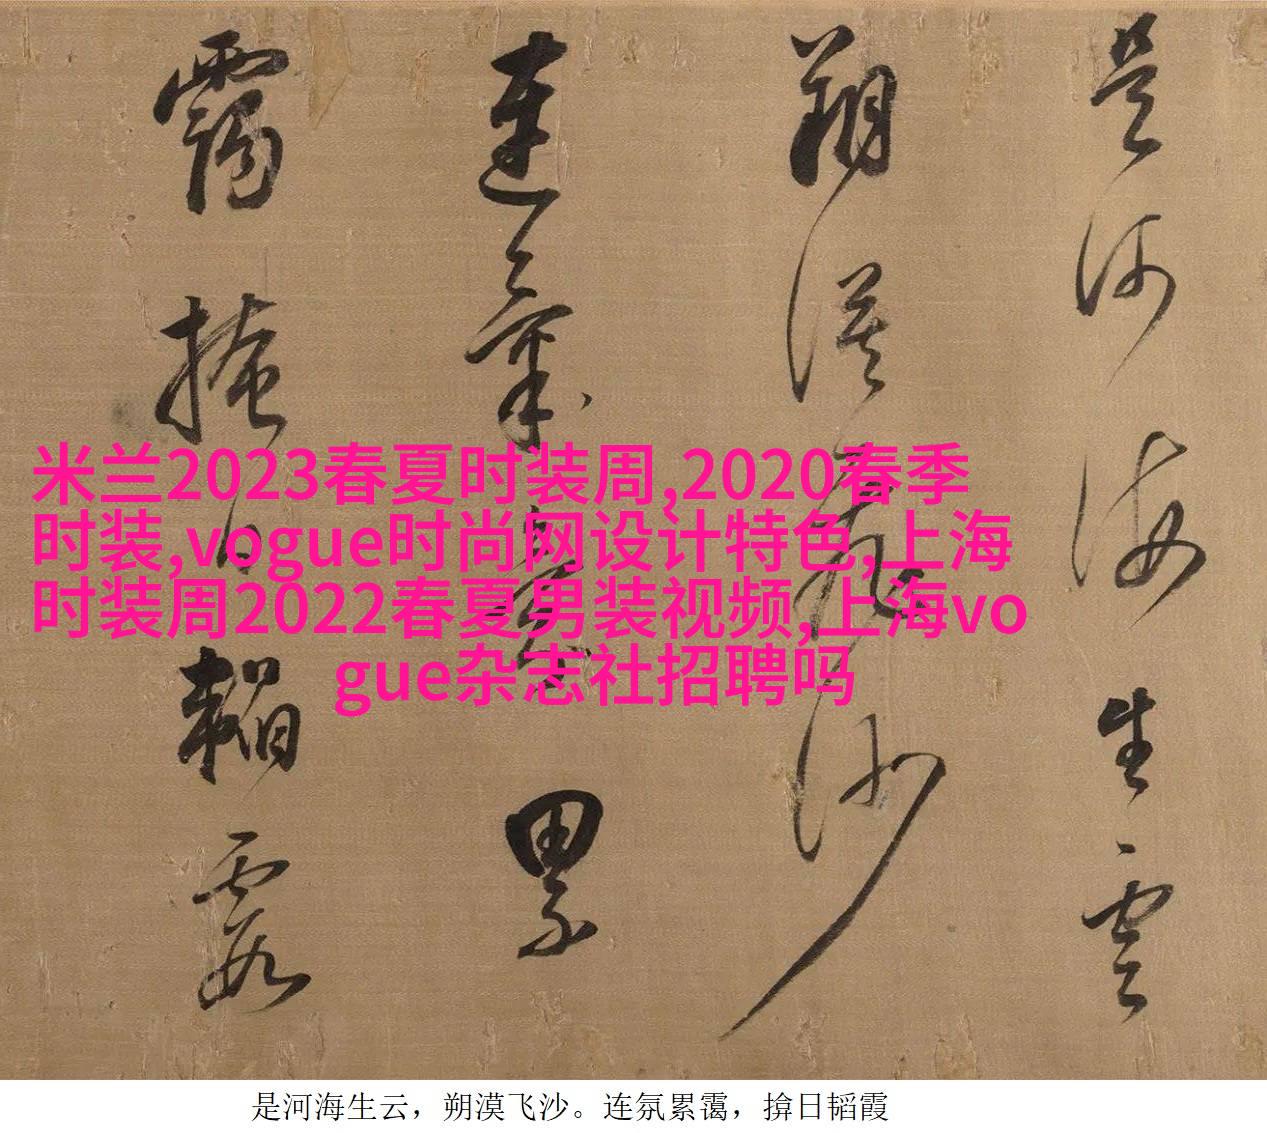 是河海生雲
朔漠飛沙
連氛累
靄掩日韜霞
米兰2023春夏时装周,2020春季
时装,vogue时尚网设计特色,上海
时装周2022春夏男装视频,上海vo
gue杂志社招聘吗
是河海生云，朔漠飞沙。连氛累霭，揜日韬霞